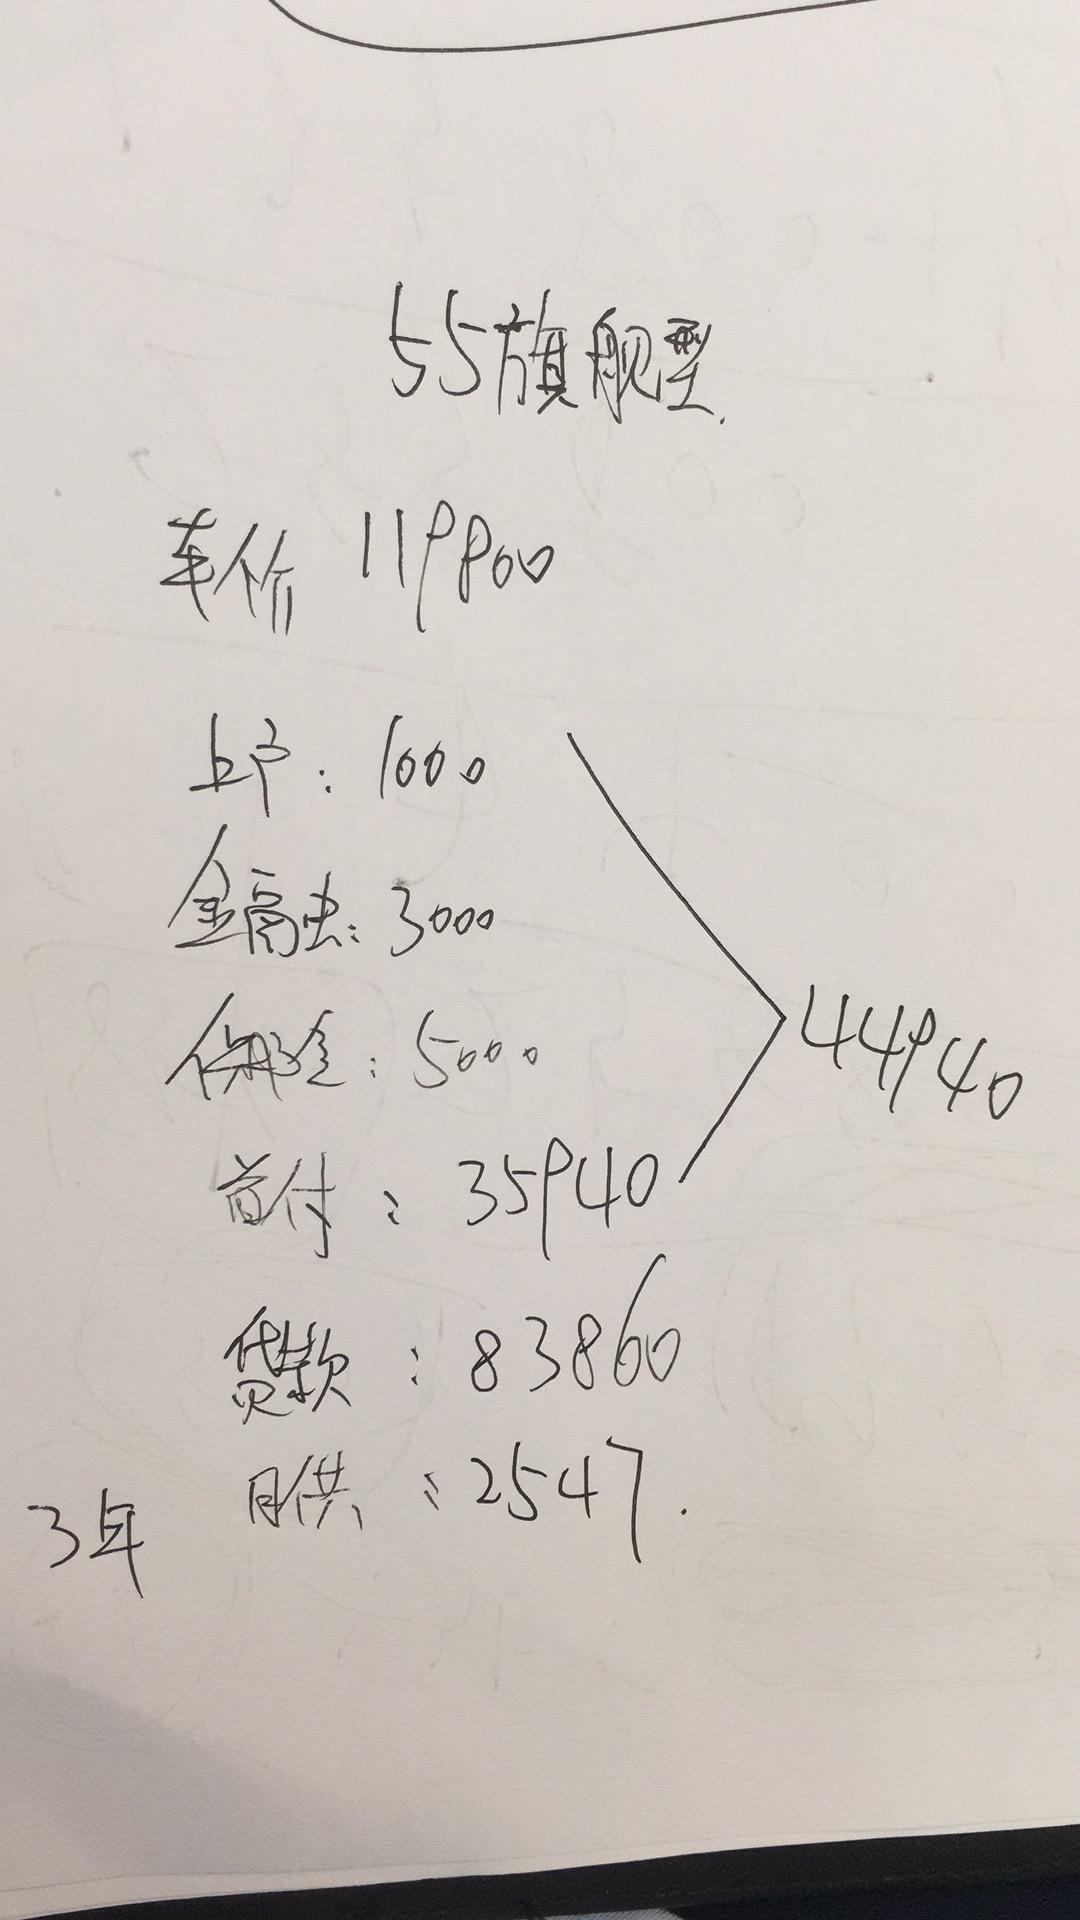 55旗舰型.
车价 119800
上户: 1000
金融: 3000
保险: 5000
44940
首付: 35940
贷款: 83860
3年 月供: 2547.